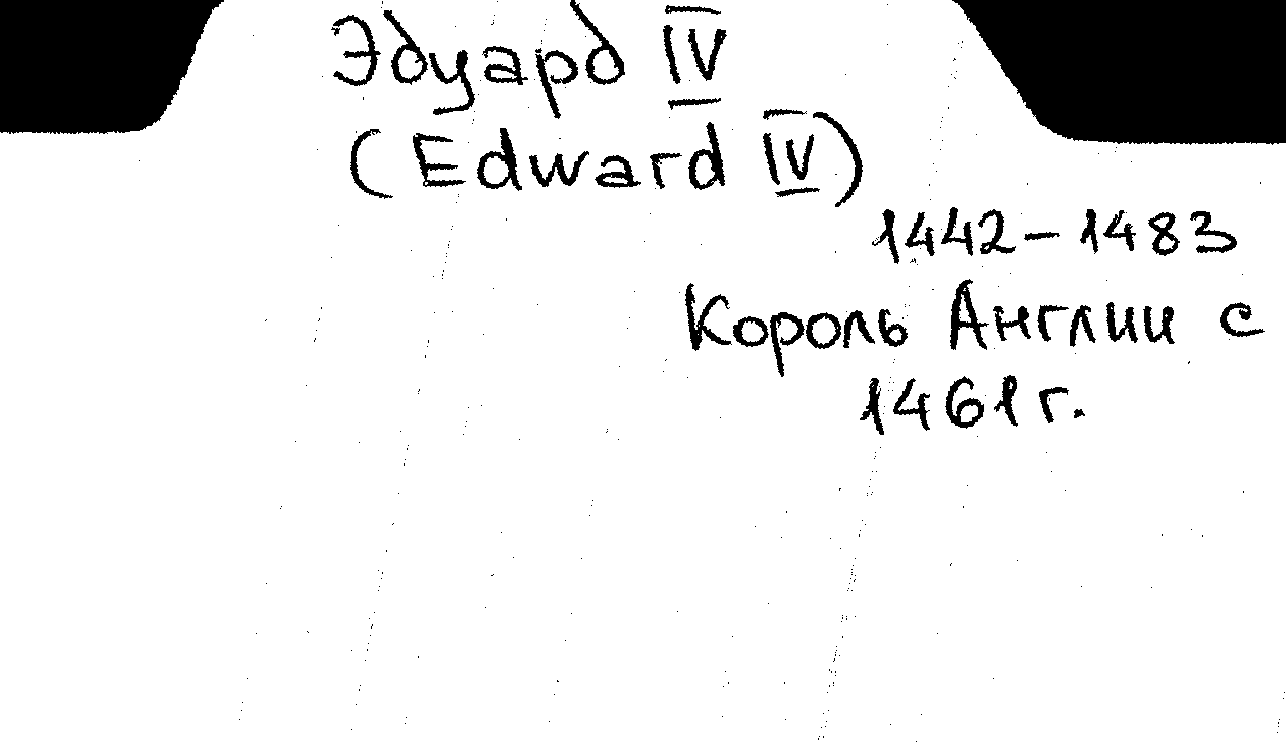 Эдуард IV
(Edward IV)
1442-1483
Король Англии с
1461 г.